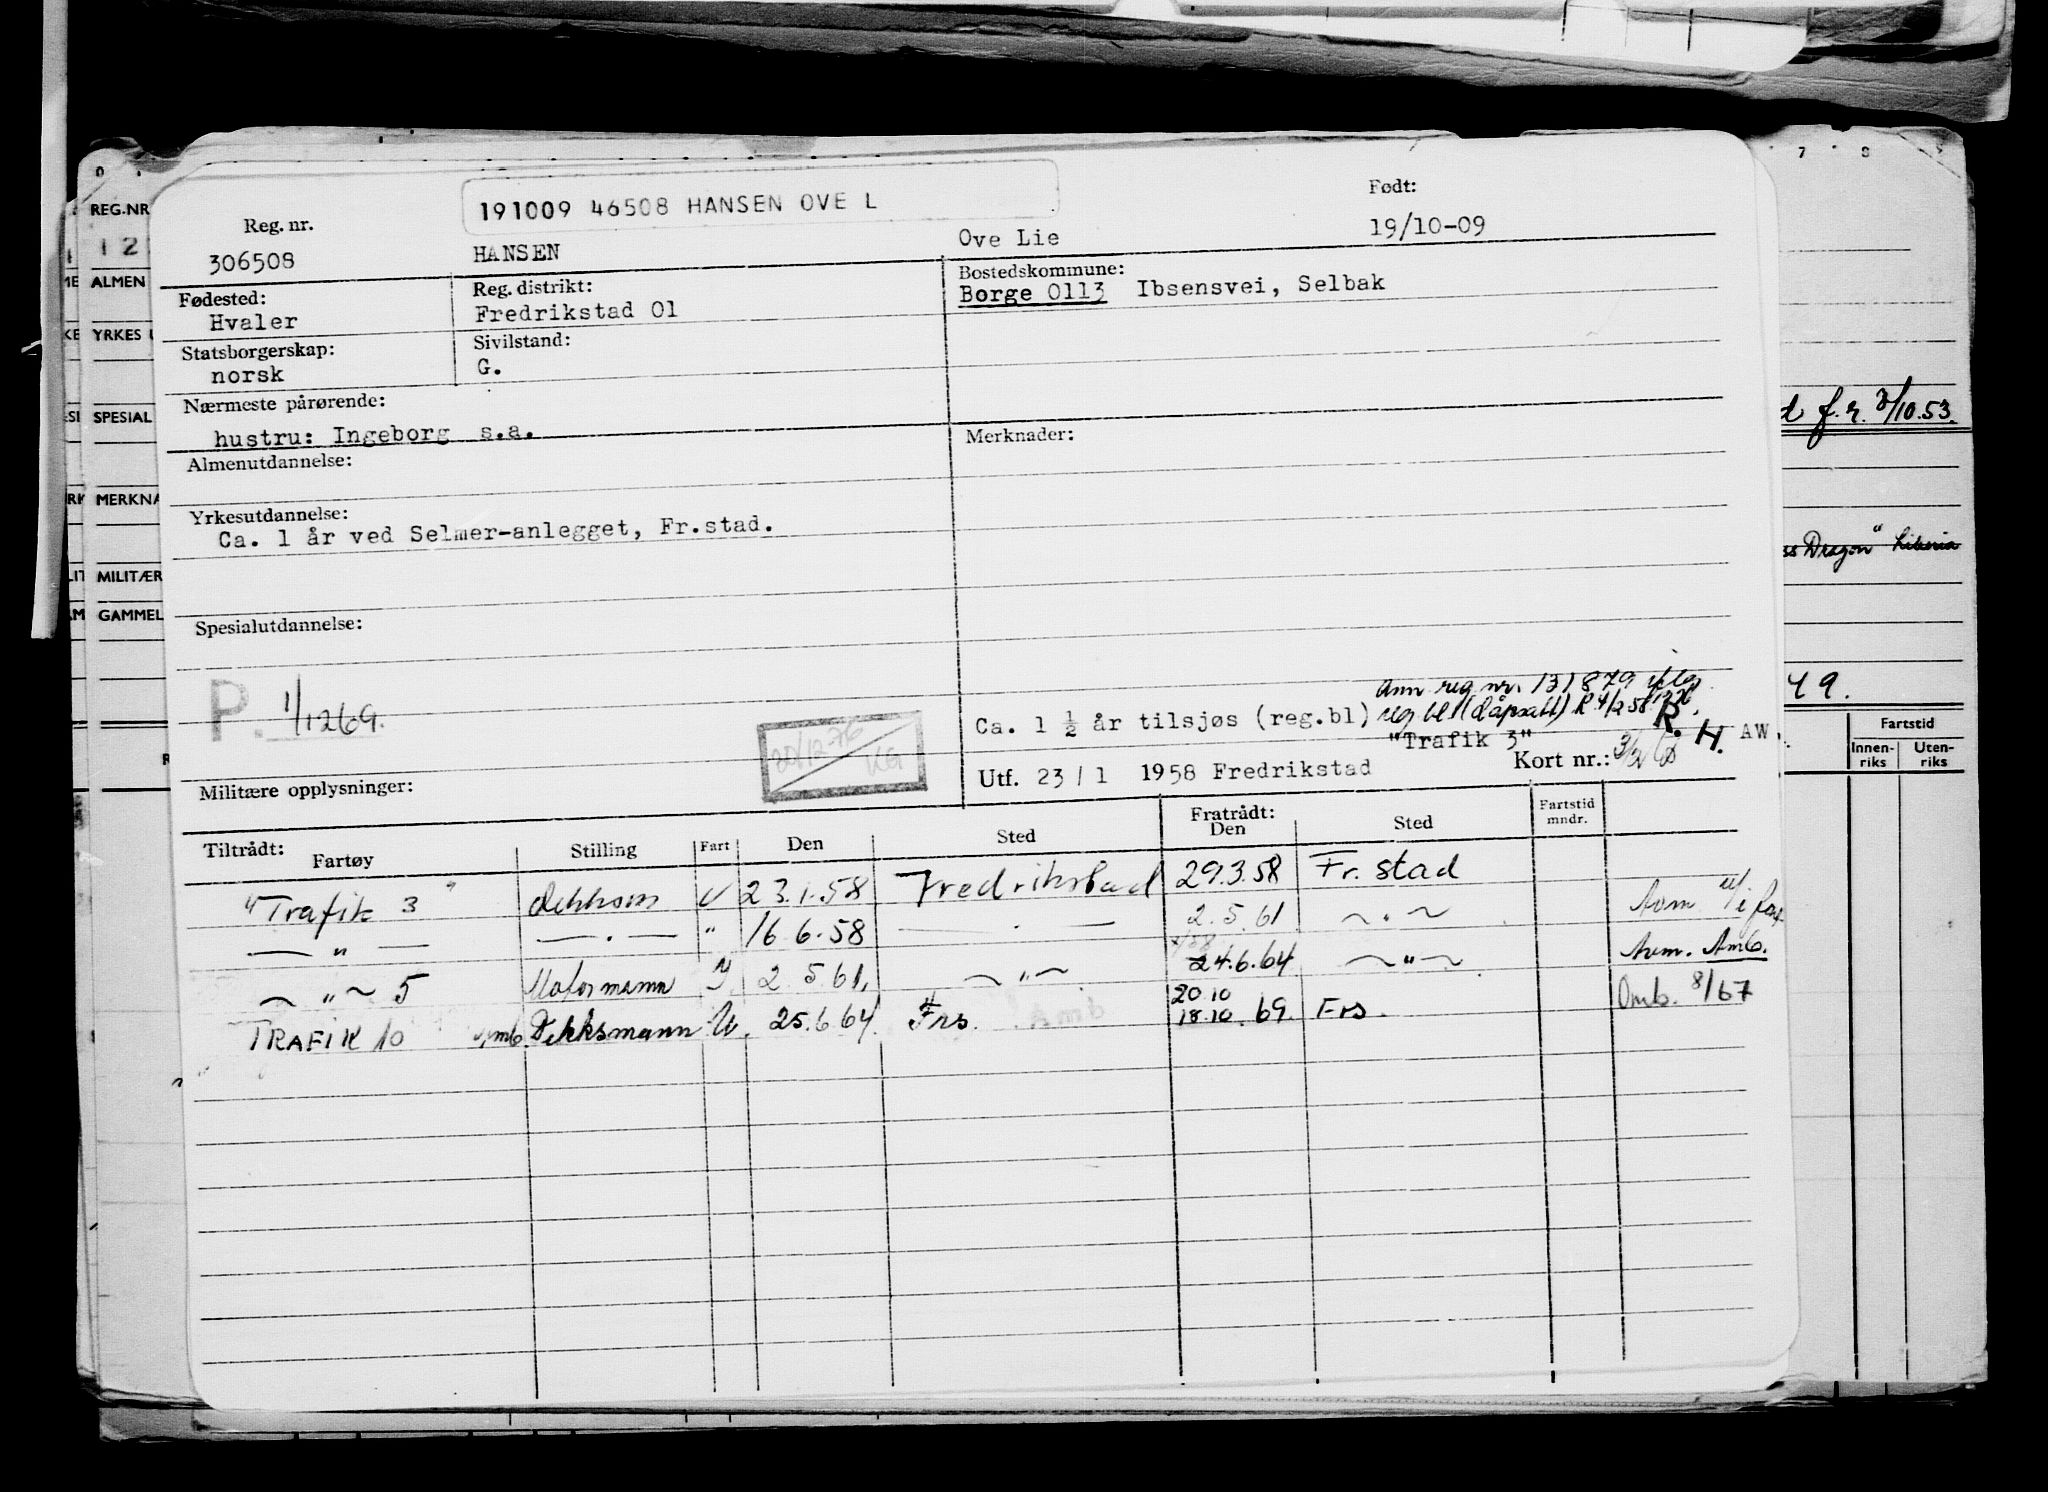 7 8 9
REG.NR
12
ALMEN
YRKES U
SPESIAL
MERKNA
MILITÆR
GAMMEL
191009 46508 HANSEN OVE L
Født:
Reg. nr.
306508 HANSEN Ove Lie 19/10-09
Fødested: Reg. distrikt: Bostedskommune:
Hvaler Fredrikstad 01 Borge 0113 Ibsensvei, Selbak
Statsborgerskap: Sivilstand:
norsk G.
Nærmeste pårørende:
hustru: Ingeborg s.a. Merknader:
Almenutdannelse:
Yrkesutdannelse:
Ca. 1 år ved Selmer-anlegget, Fr.stad.
Spesialutdannelse:
d f.r. 3/10.53.
ss Dragon" Liberia
49.
Fartstid
Innen-riks Uten-riks
P. 1/1269.
Ann reg nr. 131879
Ca. 1 ½ år tilsjøs (reg.bl) reg bl (dåpsatt) R 4/2 58
"Trafik 3" R. H. AW.
20/12-76 KG
Utf. 23/1 1958 Fredrikstad Kort nr.:
Militære opplysninger:
Tiltrådt: Fartøy Stilling Fart Den Sted Fratrådt: Den Sted Fartstid mndr.
"Trafik 3" 23.1.58 Fredrikstad 29.3.58 Fr.stad
— " — — " — " 16.6.58 — " — 2.5.61 ~ " ~
~ " ~ 5 Motormann 2.5.61. ~ " ~ 24.6.64 ~ " ~ Avm. Amb.
TRAFIK 10 Dekksmann U. 25.6.64. Frs. 20.10 18.10.69. Frs. Omb. 8/67